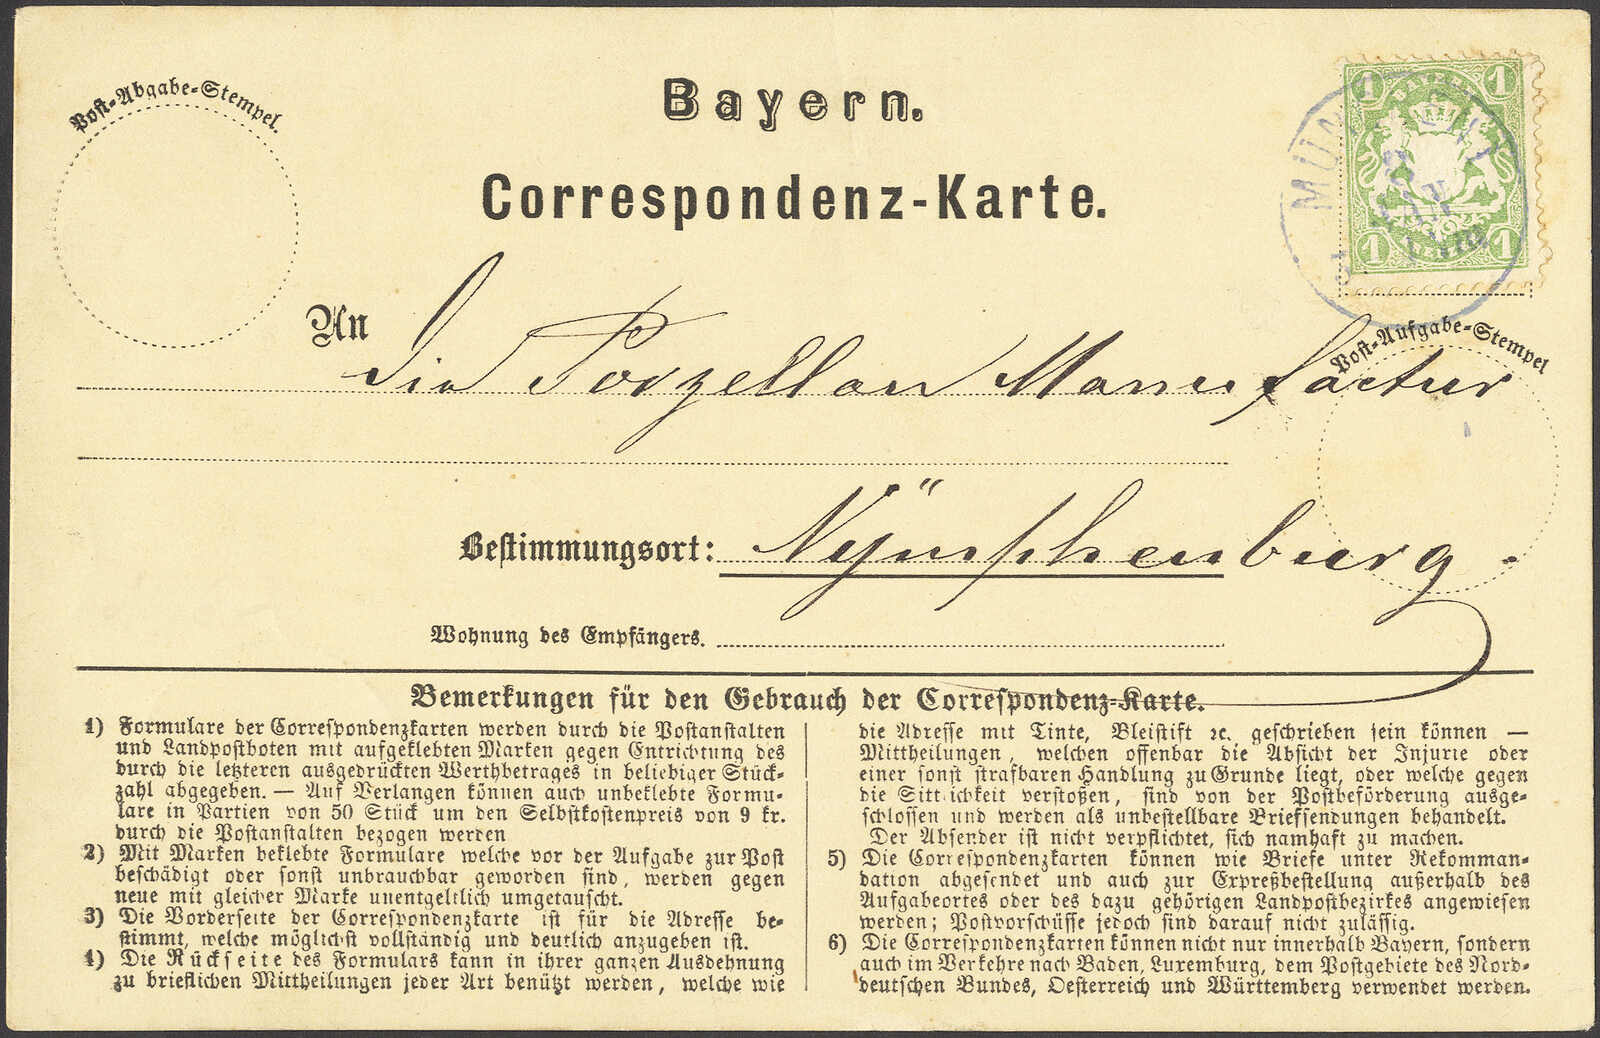 Post-Abgabe-Stempel.
Bayern.
Correspondenz-Karte.
1 BAYERN 1
1 1
MÜN
Post-Aufgabe-Stempel
An Die Porzellan Manufactur
Bestimmungsort: Nÿmphenburg.
Wohnung des Empfängers.
Bemerkungen für den Gebrauch der Correspondenz-Karte.
1) Formulare der Correspondenzkarten werden durch die Postanstalten
und Landpostboten mit aufgeklebten Marken gegen Entrichtung des
durch die letzteren ausgedrückten Werthbetrages in beliebiger Stück-
zahl abgegeben. — Auf Verlangen können auch unbeklebte Formu-
lare in Partien von 50 Stück um den Selbstkostenpreis von 9 kr.
durch die Postanstalten bezogen werden
2) Mit Marken beklebte Formulare welche vor der Aufgabe zur Post
beschädigt oder sonst unbrauchbar geworden sind, werden gegen
neue mit gleicher Marke unentgeltlich umgetauscht.
3) Die Vorderseite der Correspondenzkarte ist für die Adresse be-
stimmt, welche möglichst vollständig und deutlich anzugeben ist.
4) Die Rückseite des Formulars kann in ihrer ganzen Ausdehnung
zu brieflichen Mittheilungen jeder Art benützt werden, welche wie
die Adresse mit Tinte, Bleistift ꝛc. geschrieben sein können —
Mittheilungen, welchen offenbar die Absicht der Injurie oder
einer sonst strafbaren Handlung zu Grunde liegt, oder welche gegen
die Sittlichkeit verstoßen, sind von der Postbeförderung ausge-
schlossen und werden als unbestellbare Briefsendungen behandelt.
Der Absender ist nicht verpflichtet, sich namhaft zu machen.
5) Die Correspondenzkarten können wie Briefe unter Rekomman-
dation abgesendet und auch zur Expreßbestellung außerhalb des
Aufgabeortes oder des dazu gehörigen Landpostbezirkes angewiesen
werden; Postvorschüsse jedoch sind darauf nicht zulässig.
6) Die Correspondenzkarten können nicht nur innerhalb Bayern, sondern
auch im Verkehre nach Baden, Luxemburg, dem Postgebiete des Nord-
deutschen Bundes, Oesterreich und Württemberg verwendet werden.